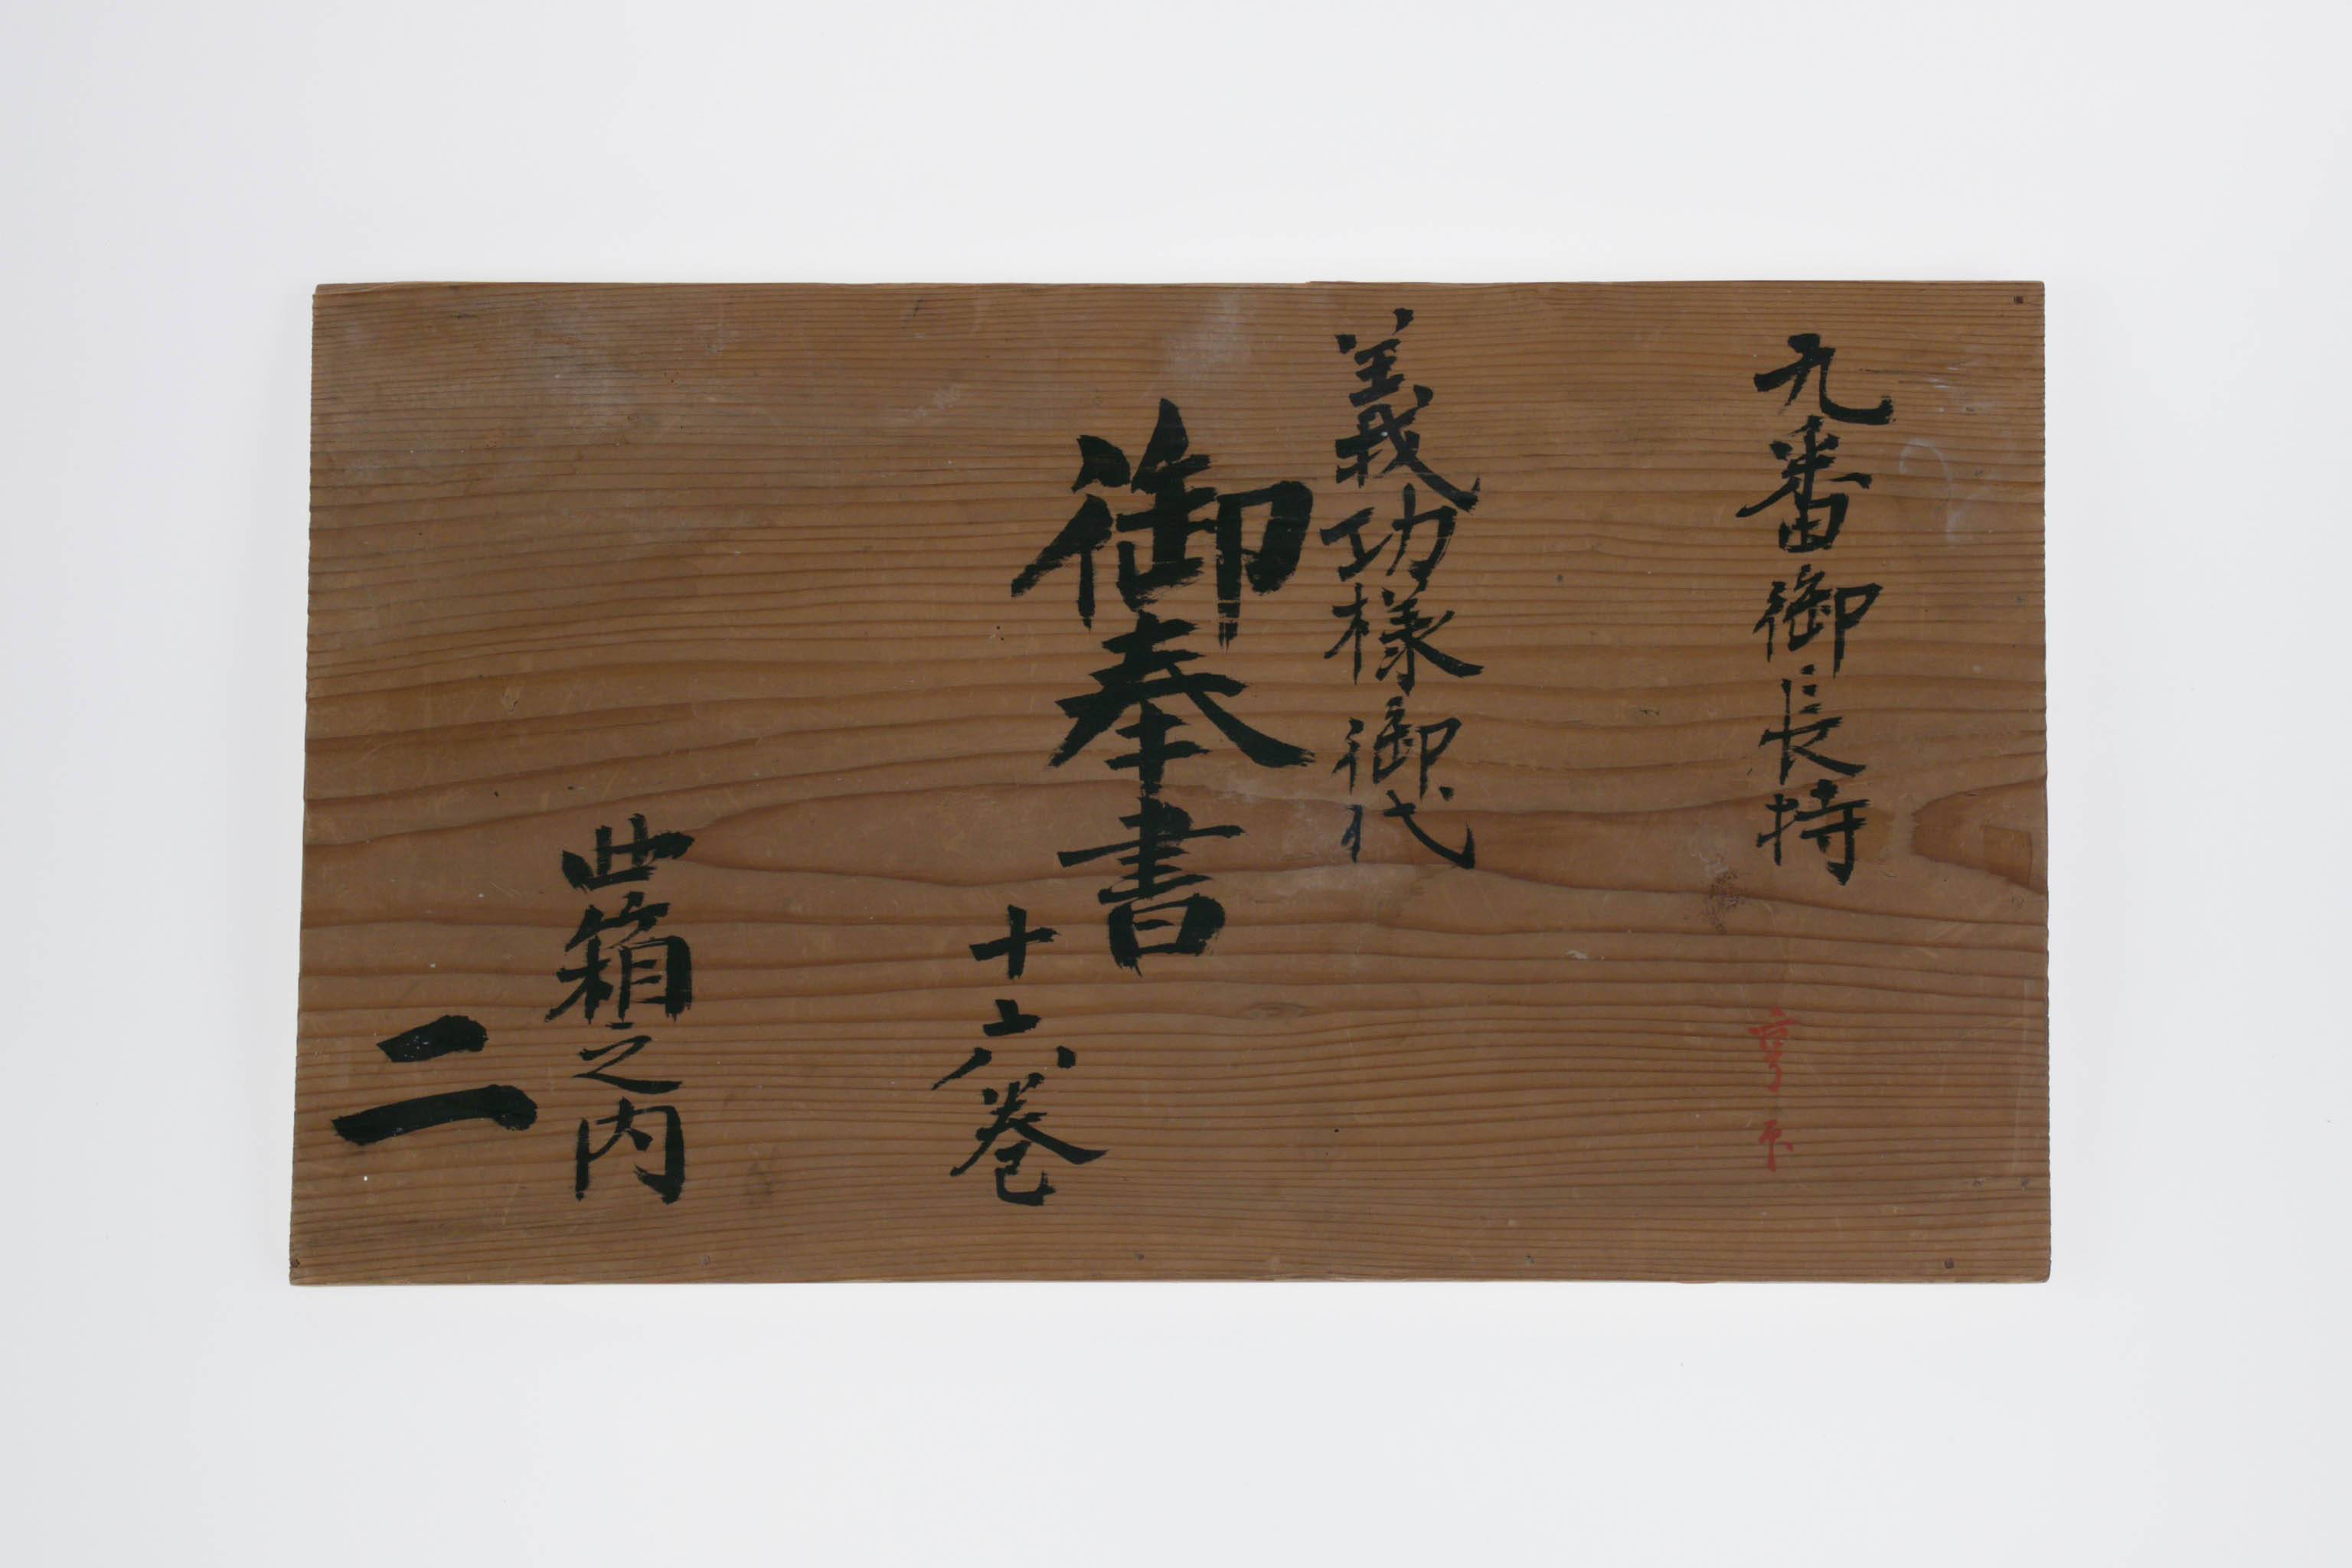 九番御長持
義功様御代
御奉書
十六巻
此箱之内
二